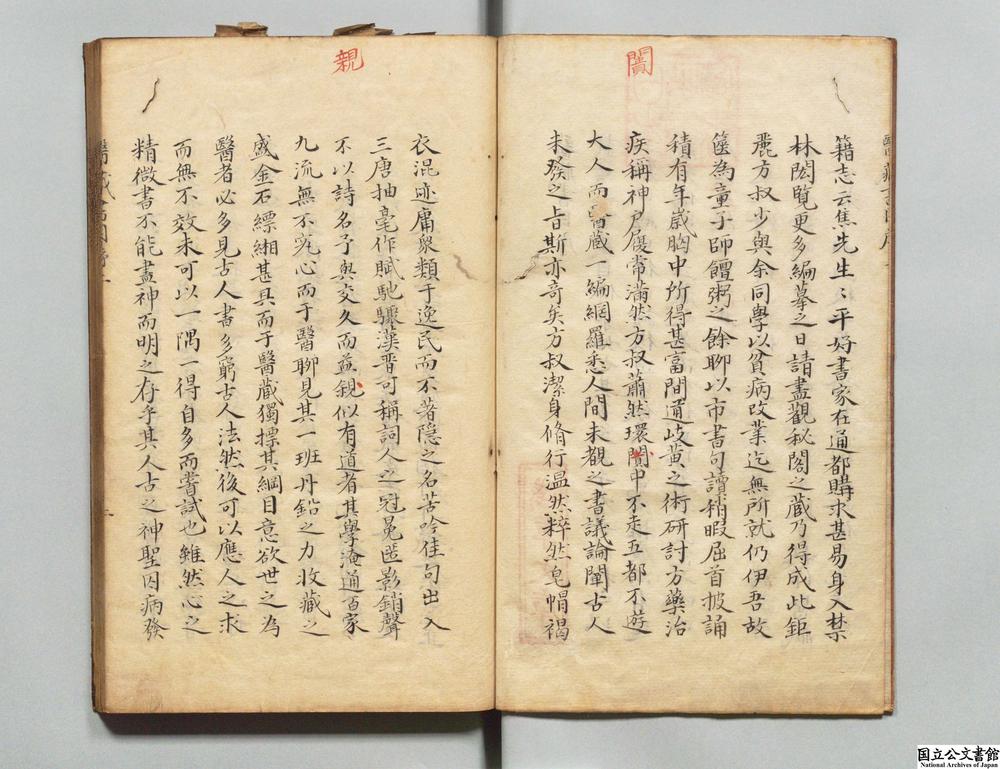 籍志云焦先生〻平好書家在通都購求甚易身入禁
林閎覽更多編摹之日請盡觀秘閣之藏乃得成此鉅
麗方叔少與余同學以貧病改業迄無所就仍伊吾故
篋為童子師饘粥之餘聊以市書句讀稍暇屈首披誦
積有年歲胸中所得甚富間通岐黃之術研討方藥治
疾稱神尸履常滿然方叔蕭然環闠中不走五都不遊
大人而醫藏一編網羅悉人間未覩之書議論闡古人
未發之旨斯亦奇矣方叔潔身脩行溫然粹然皂帽褐
闠
衣混迹庸衆類于逸民而不著隱之名苦吟佳句出入
三唐抽毫作賦馳驟漢晋可稱詞人之冠冕匿影銷聲
不以詩名予與交久而益親似有道者其學淹通百家
九流無不究心而于醫聊見其一班丹鉛之力收藏之
盛金石縹緗甚具而于醫藏獨摽其綱目意欲世之為
醫者必多見古人書多窮古人法然後可以應人之求
而無不效未可以一隅一得自多而嘗試也雖然心之
精微書不能盡神而明之存乎其人古之神聖因病發
親
国立公文書館
National Archives of Japan